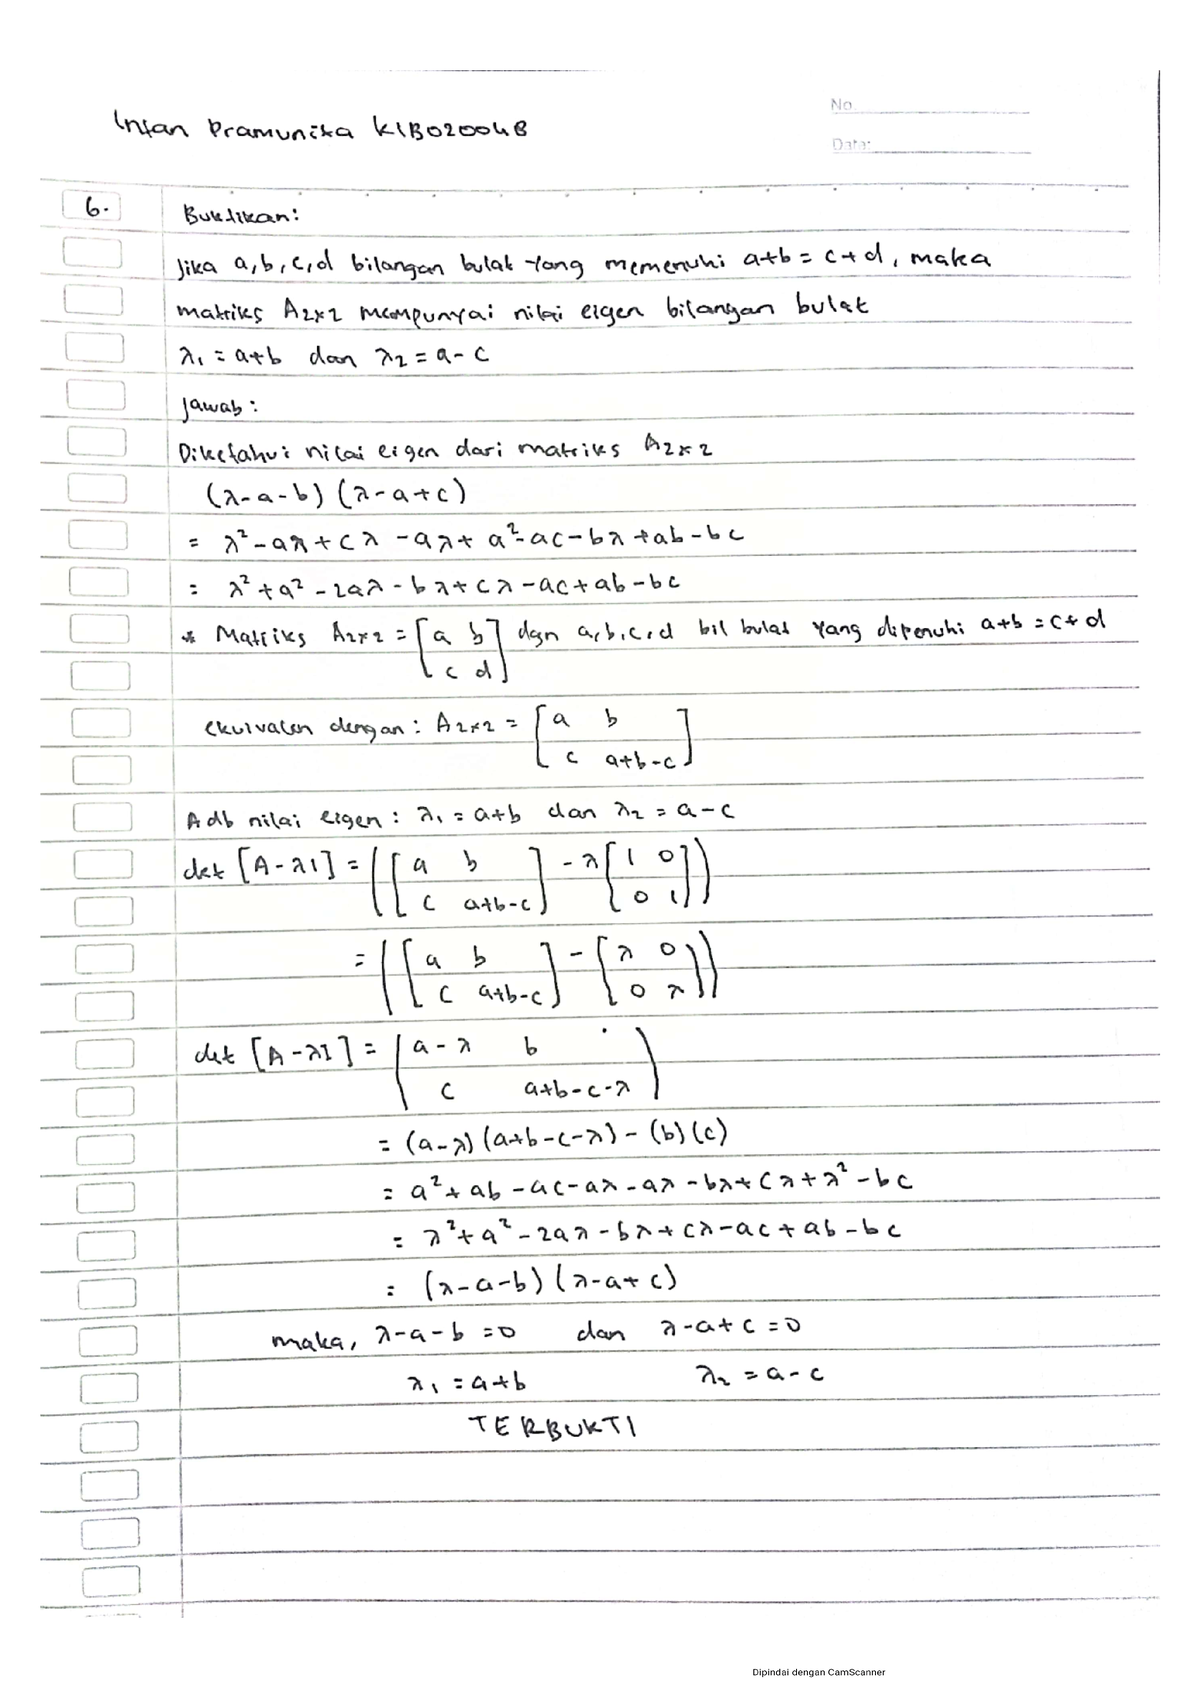 No.
Intan Pramunika K1B020048
Date:
6. Buktikan:
Jika a, b, c, d bilangan bulat yang memenuhi a+b = c+d, maka
matriks A2x2 mempunyai nilai eigen bilangan bulat
λ1 = a+b dan λ2 = a-c
Jawab :
Diketahui nilai eigen dari matriks A2x2
(λ-a-b) (λ-a+c)
= λ² - aλ + cλ - aλ + a² - ac - bλ + ab - bc
= λ² + a² - 2aλ - bλ + cλ - ac + ab - bc
* Matriks A2x2 = [a b] dgn a, b, c, d bil bulat yang dipenuhi a+b = c+d
[c d]
ekuivalen dengan : A2x2 = [a b]
[c a+b-c]
Adb nilai eigen : λ1 = a+b dan λ2 = a-c
det [A-λI] = ([a b] - λ [1 0])
([c a+b-c] [0 1])
= ([a b] - [λ 0])
([c a+b-c] [0 λ])
det [A-λI] = |a-λ b|
|c a+b-c-λ|
= (a-λ) (a+b-c-λ) - (b) (c)
= a² + ab - ac - aλ - aλ - bλ + cλ + λ² - bc
= λ² + a² - 2aλ - bλ + cλ - ac + ab - bc
= (λ-a-b) (λ-a+c)
maka, λ-a-b = 0 dan λ-a+c = 0
λ1 = a+b λ2 = a-c
TERBUKTI
Dipindai dengan CamScanner